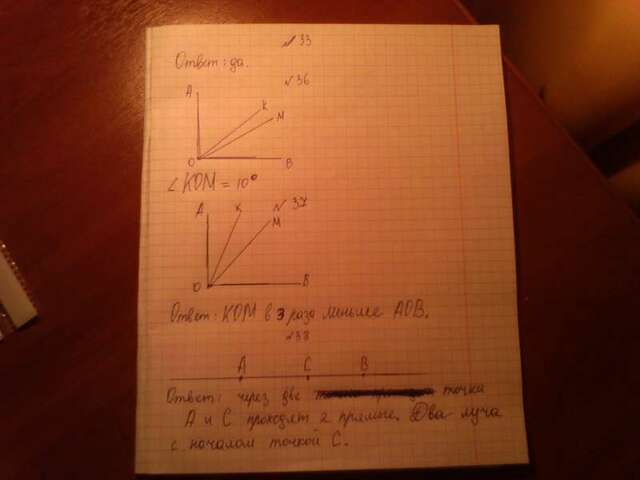 №33
Ответ: да.
№36
A
K
M
O
B
∠KOM = 10°
№37
A
K
M
O
B
Ответ: KOM в 3 раза меньше AOB.
№38
A C B
Ответ: через две точки
A и C проходят 2 прямые. Два луча
с началом точкой C.